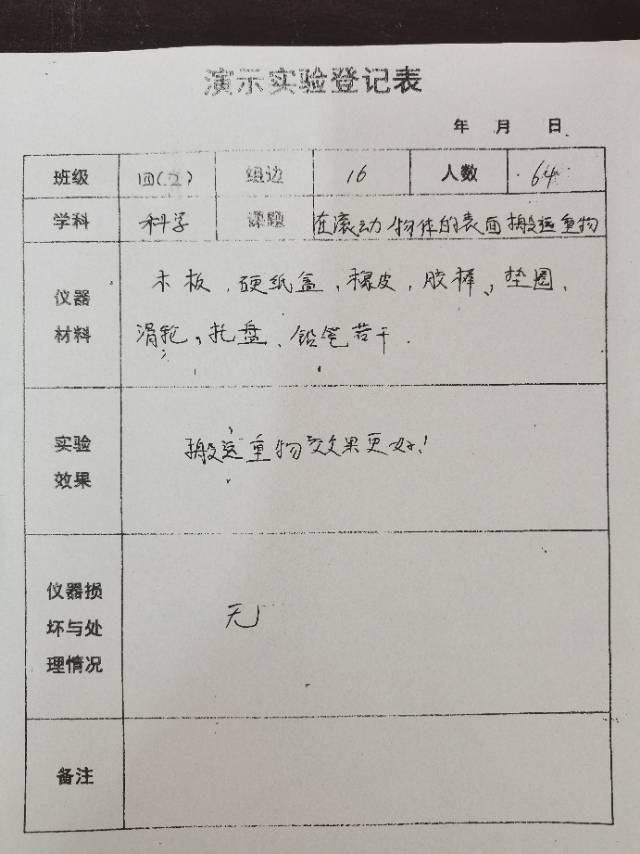 演示实验登记表
年 月 日
班级 四(2) 组边 16 人数 64
学科 科学 课题 在滚动物体的表面搬运重物
仪器 木板，硬纸盒，橡皮，胶棒、垫圈、
材料 滑轮、托盘、铅笔若干.
实验 搬运重物效果更好!
效果
仪器损
坏与处 无
理情况
备注